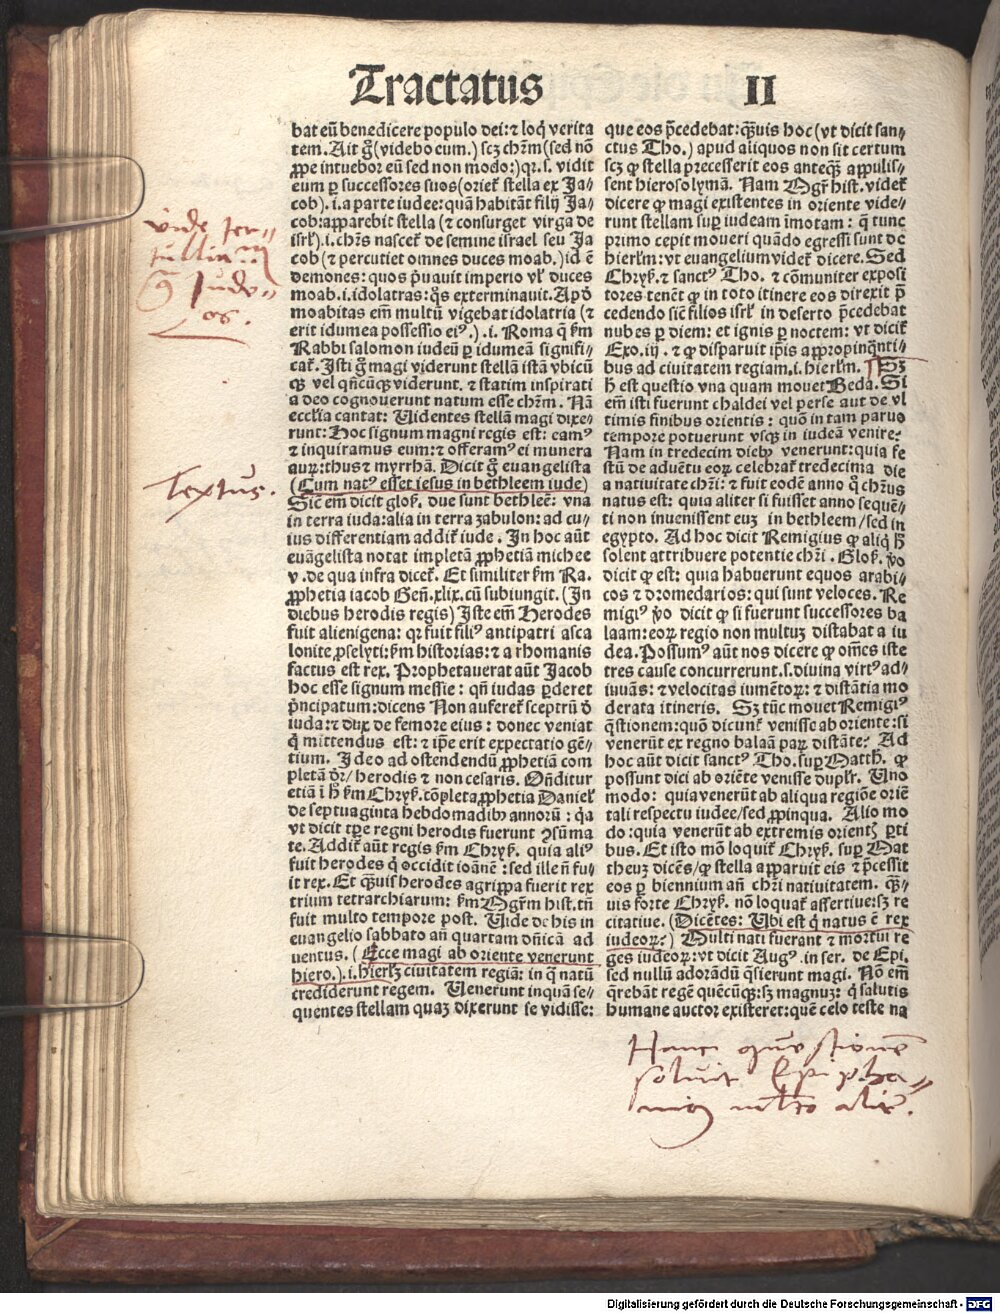 Tractatus II
bat eũ benedicere populo dei: ⁊ loqͥ verita
tem. Ait gͦ (videbo eum.) scꝫ chrͫm (sed nõ
ꝓpe intuebor eũ sed non modo:) qꝛ .s. vidit
eum ꝑ successores suos (orietᷣ stella ex Ja⸗
cob) .i. a parte iudee: quã habitãt filij Ja⸗
cob: apparebit stella (⁊ consurget virga de
isrͬl) .i. chrͫs nascetᷣ de semine israel seu Ja
cob (⁊ percutiet omnes duces moab.) id ẽ
demones: quos p̃uauit imperio vl᷑ duces
moab .i. idolatras: q̃s exterminauit. Apd̃
moabitas em̃ multũ vigebat idolatria (⁊
erit idumea possessio eiꝰ.) .i. Roma q̃ ẜm
Rabbi salomon iudeũ ꝑ idumeã signifi⸗
catᷣ. Isti gͦ magi viderunt stellã istã vbicũ
qꝫ vel qñcũqꝫ viderunt. ⁊ statim inspirati
a deo cognouerunt natum esse chrͫm. Nã
eccl᷑ia cantat: Uidentes stellã magi dixe⸗
runt: Hoc signum magni regis est: eamꝰ
⁊ inquiramus eum: ⁊ offeramꝰ ei munera
auꝝ: thus ⁊ myrrhã. Dicit gͦ euangelista
(Cum natꝰ esset iesus in bethleem iude)
Sic̃ em̃ dicit gloẜ. due sunt bethleẽ: vna
in terra iuda: alia in terra zabulon: ad cu⸗
ius differentiam additᷣ iude. In hoc aũt
euãgelista notat impletã ꝓphetiã michee
v. de qua infra dicetᷣ. Et similiter ẜm Ra.
ꝓphetia iacob Geñ. xlix. cũ subiungit. (In
diebus herodis regis) Iste em̃ Herodes
fuit alienigena: qꝛ fuit filiꝰ antipatri asca
lonite ꝓselyti: ẜm historias: ⁊ a rhomanis
factus est rex. Prophetauerat aũt Jacob
hoc esse signum messie: qñ iudas ꝑderet
pͥncipatum: dicens Non auferetᷣ sceptrũ d̃
iuda: ⁊ dux de femore eius: donec veniat
qͥ mittendus est: ⁊ ip̃e erit expectatio gẽ⸗
tium. Ideo ad ostendendũ ꝓphetiã com
pletã dr̃/ herodis ⁊ non cesaris. Oñditur
etiã ĩ h̃ ẜm Chryẜ. cõpleta ꝓphetia Danielᷣ
de septuaginta hebdomadibꝰ annorũ: q̃a
vt dicit tꝑe regni herodis fuerunt ꝯsũma
te. Additᷣ aũt regis ẜm Chryẜ. quia aliꝰ
fuit herodes qͥ occidit ioãnẽ: sed ille ñ fu⸗
it rex. Et qͣꝫuis herodes agrippa fuerit rex
trium tetrarchiarum: ẜm Mgr̃m hist. tñ
fuit multo tempore post. Uide de his in
euangelio sabbato añ quartam dñicã ad
uentus. (Ecce magi ab oriente venerunt
hiero.) .i. hierlꝫ ciuitatem regiã: in q̃ natũ
crediderunt regem. Uenerunt inquã se⸗
quentes stellam quaꝫ dixerunt se vidisse:
que eos p̃cedebat: qͣꝫuis hoc (vt dicit san⸗
ctus Tho.) apud aliquos non sit certum
scꝫ ꝙ stella precesserit eos anteqͣꝫ appulis⸗
sent hierosolymã. Nam Mgr̃ hist. videtᷣ
dicere ꝙ magi existentes in oriente vide⸗
runt stellam suꝑ iudeam ĩmotam: q̃ tunc
primo cepit moueri quãdo egressi sunt de
hierlm̃: vt euangelium videtᷣ dicere. Sed
Chryẜ. ⁊ sanctꝰ Tho. ⁊ cõmuniter exposi
tores tenẽt ꝙ in toto itinere eos direxit p̃
cedendo sic̃ filios isrl᷑ in deserto p̃cedebat
nubes ꝑ diem: et ignis ꝑ noctem: vt dicitᷣ
Exo. iij. ⁊ ꝙ disparuit ip̃is appropinqͣnti⸗
bus ad ciuitatem regiam .i. hierlm̃. Sꝫ
h̃ est questio vna quam mouet Beda. Si
em̃ isti fuerunt chaldei vel perse aut de vl
timis finibus orientis: quõ in tam paruo
tempore potuerunt vsqꝫ in iudeã venire?
Nam in tredecim diebꝰ venerunt: quia fe
stũ de aduẽtu eoꝝ celebratᷣ tredecima die
a natiuitate chrͥi: ⁊ fuit eodẽ anno q̃ chrͫus
natus est: quia aliter si fuisset anno sequẽ⸗
ti non inuenissent euꝫ in bethleem/ sed in
egypto. Ad hoc dicit Remigius ꝙ aliqͥ h̃
solent attribuere potentie chrͥi. Gloẜ. v̊o
dicit ꝙ est: quia habuerunt equos arabi⸗
cos ⁊ dromedarios: qui sunt veloces. Re
migiꝰ v̊o dicit ꝙ si fuerunt successores ba
laam: eoꝝ regio non multuꝫ distabat a iu
dea. Possumꝰ aũt nos dicere ꝙ om̃es iste
tres cause concurrerunt .s. diuina virtꝰ ad⸗
iuuãs: ⁊ velocitas iumẽtoꝝ: ⁊ distãtia mo
derata itineris. Sꝫ tũc mouet Remigiꝰ
q̃stionem: quõ dicuntᷣ venisse ab oriente: si
venerũt ex regno balaã paꝝ distãte? Ad
hoc aũt dicit sanctꝰ Tho. suꝑ Matth. ꝙ
possunt dici ab oriẽte venisse duplr̃. Uno
modo: quia venerũt ab aliqua regiõe oriẽ
tali respectu iudee/ sed ꝓpinqua. Alio mo
do: quia venerũt ab extremis orientꝭ ꝑti
bus. Et isto mõ loquitᷣ Chryẜ. suꝑ Mat
theuꝫ dicẽs/ ꝙ stella apparuit eis ⁊ p̃cessit
eos ꝑ biennium añ chrͥi natiuitatem. qͣꝫ⸗
uis forte Chryẜ. nõ loquatᷣ assertiue: sꝫ re
citatiue. (Dicẽtes: Ubi est qͥ natus ẽ rex
iudeoꝝ?) Multi nati fuerant ⁊ mortui re
ges iudeoꝝ: vt dicit Augꝰ. in ser. de Epi.
sed nullũ adorãdũ q̃sierunt magi. Nõ em̃
q̃rebãt regẽ quẽcũqꝫ: sꝫ magnuꝫ: qͥ salutis
humane auctor existeret: quẽ celo teste na
vide ter⸗
tullianũ
ꝯ͂ Iude⸗
os.
Textus.
Hanc questionẽ
soluit Epipha⸗
niꝰ multo aliter.
Digitalisierung gefördert durch die Deutsche Forschungsgemeinschaft - DFG